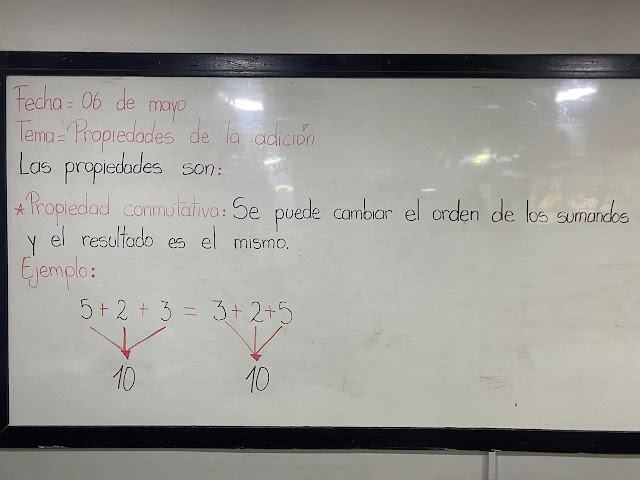 Fecha= 06 de mayo
Tema= Propiedades de la adición
Las propiedades son:
* Propiedad conmutativa: Se puede cambiar el orden de los sumandos
y el resultado es el mismo.
Ejemplo:
5 + 2 + 3 = 3 + 2 + 5
10 10